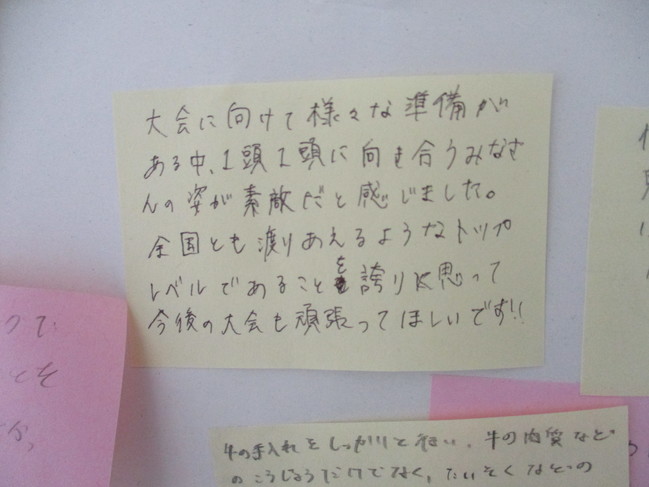 大会に向けて様々な準備が
ある中、1頭1頭に向き合うみなさ
んの姿が素敵だと感じました。
全国とも渡りあえるようなトップ
レベルであることを誇りに思って
今後の大会も頑張ってほしいです!!
牛の手入れをしっかりと行い、牛の肉質など
のこうじょうだけでなく、たいそくなどの